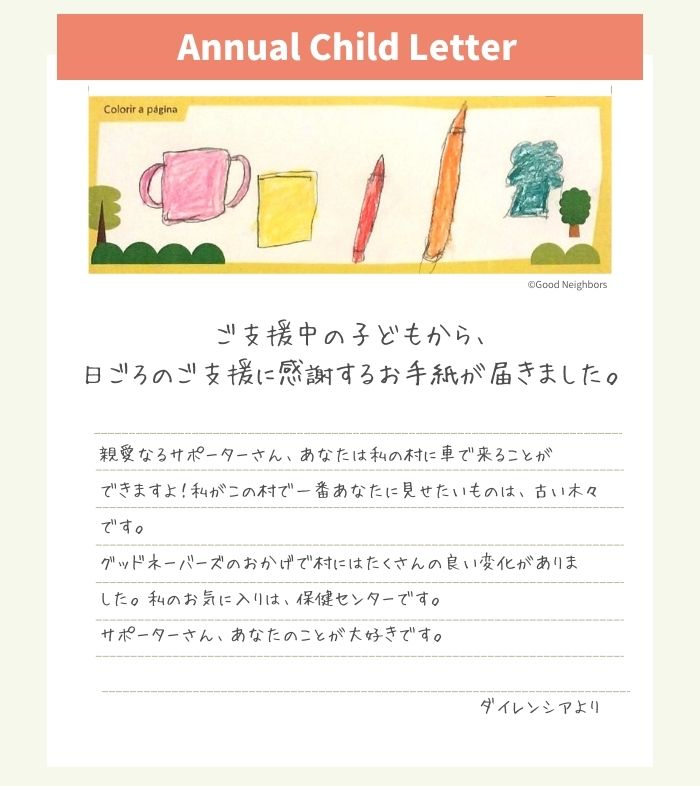 Annual Child Letter
Colorir a página
©Good Neighbors
ご支援中の子どもから、
日ごろのご支援に感謝するお手紙が届きました。
親愛なるサポーターさん、あなたは私の村に車で来ることが
できますよ！私がこの村で一番あなたに見せたいものは、古い木々
です。
グッドネーバーズのおかげで村にはたくさんの良い変化がありま
した。私のお気に入りは、保健センターです。
サポーターさん、あなたのことが大好きです。
ダイレンシアより